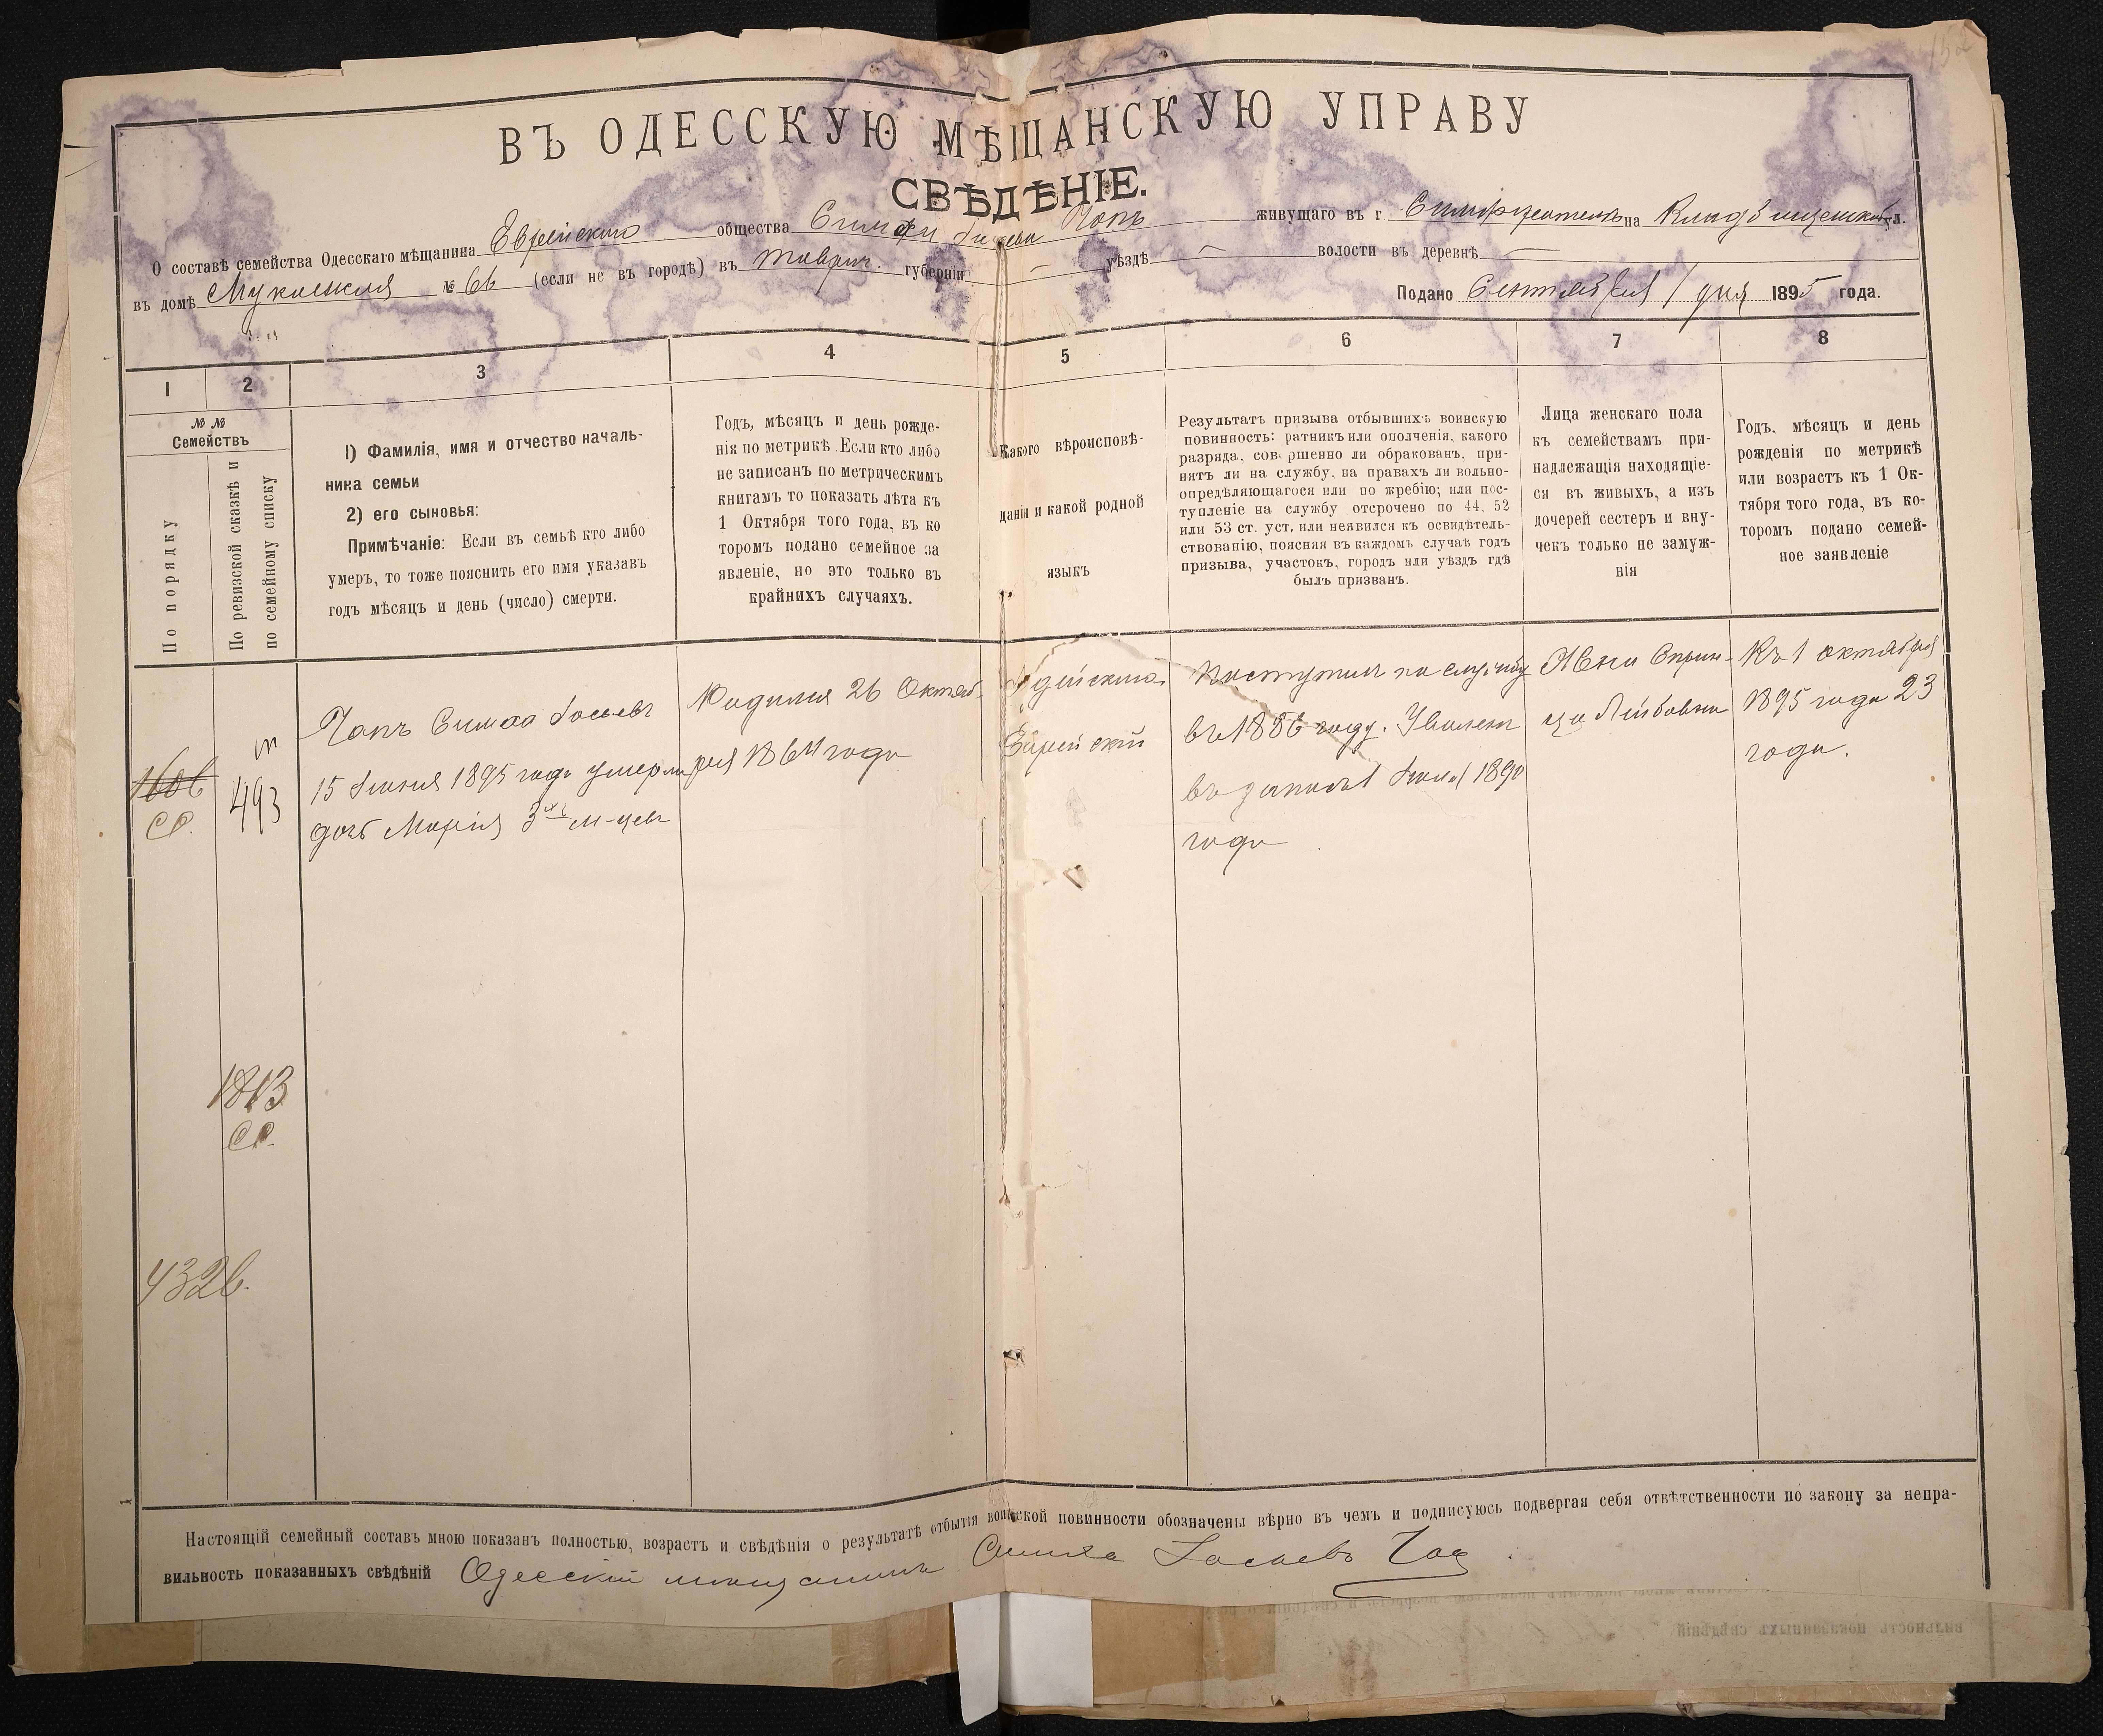 ВЪ ОДЕССКУЮ МѢЩАНСКУЮ УПРАВУ
СВѢДѢНІЕ.
О составѣ семейства Одесскаго мѣщанина Еврейскаго общества живущаго въ г на ул.
въ домѣ № 66 (если не въ городѣ) въ Таврич. губерніи — уѣздѣ — волости въ деревнѣ —
Подано Сентября 1 дня 1895 года.
1 2 3 4 5 6 7 8
№ №
Семействъ
По порядку
По ревизской сказкѣ и
по семейному списку
1) Фамилія, имя и отчество началь-
ника семьи
2) его сыновья:
Примѣчаніе: Если въ семьѣ кто либо
умеръ, то тоже пояснить его имя указавъ
годъ мѣсяцъ и день (число) смерти.
Годъ, мѣсяцъ и день рожде-
нія по метрикѣ. Если кто либо
не записанъ по метрическимъ
книгамъ то показать лѣта къ
1 Октября того года, въ ко
торомъ подано семейное за
явленіе, но это только въ
крайнихъ случаяхъ.
Какого вѣроисповѣ-
данія и какой родной
языкъ
Результатъ призыва отбывшихъ воинскую
повинность: ратникъ или ополченія, какого
разряда, совершенно ли обракованъ, при-
нятъ ли на службу, на правахъ ли вольно-
опредѣляющагося или по жребію; или пос-
тупленіе на службу отсрочено по 44. 52
или 53 ст. уст. или неявился къ освидѣтель-
ствованію, поясняя въ каждомъ случаѣ годъ
призыва, участокъ, городъ или уѣздъ гдѣ
былъ призванъ.
Лица женскаго пола
къ семействамъ при-
надлежащія находящіе-
ся въ живыхъ, а изъ
дочерей сестеръ и вну-
чекъ только не замуж-
нія
Годъ, мѣсяцъ и день
рожденія по метрикѣ
или возрастъ къ 1 Ок-
тября того года, въ ко-
торомъ подано семей-
ное заявленіе
493
Чапъ Симха Іосьевъ
15 Іюня 1895 года умерла
дочь Марія 3хъ м-цевъ
Родился 26 Октяб
ря 1864 года
Іудейскаго
Еврейскій
Поступилъ на службу
въ 1886 году. Уволенъ
въ запасъ 1890
года
Жена Сприн-
ца Лейбовна
Къ 1 октября
1895 года 23
года.
1813
4326.
Настоящій семейный составъ мною показанъ полностью, возрастъ и свѣдѣнія о результатѣ отбытія воинской повинности обозначены вѣрно въ чемъ и подписуюсь подвергая себя отвѣтственности по закону за непра-
вильность показанныхъ свѣдѣній Одесскій мѣщанинъ Симха Іосьевъ Чап